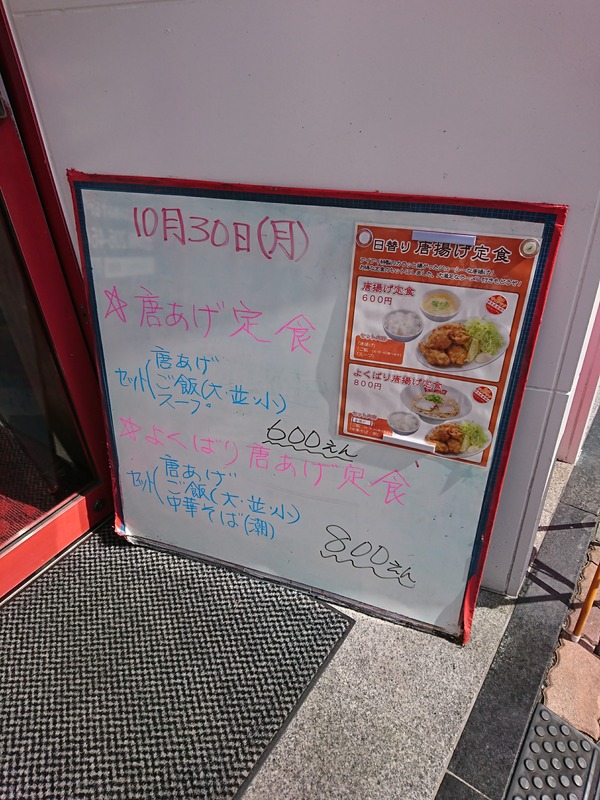 10月30日(月)
☆唐あげ定食
セット(唐あげ
ご飯(大・並・小)
スープ
600えん
☆よくばり唐あげ定食
セット(唐あげ
ご飯(大・並・小)
中華そば(潮)
800えん
日替り 唐揚げ定食
唐揚げ定食
600円
よくばり唐揚げ定食
800円